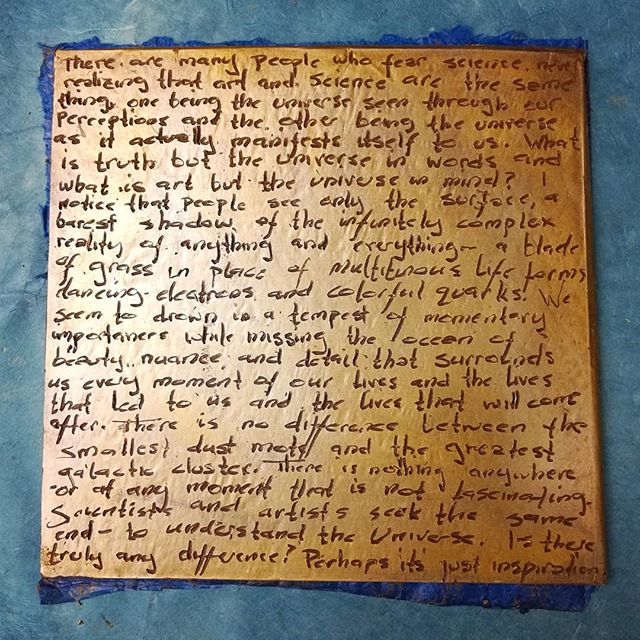 There are many people who fear science never
realizing that art and science are the same
thing, one being the universe seen through our
perceptions and the other being the universe
as it actually manifests itself to us. What
is truth but the universe in words and
what is art but the universe in mind? I
notice that people see only the surface, a
barest shadow of the infinitely complex
reality of anything and everything - a blade
of grass in place of multitunous life forms
dancing electrons and colorful quarks. We
seem to drown in a tempest of momentary
importances while missing the ocean of
beauty, nuance and detail that surrounds
us every moment of our lives and the lives
that led to us and the lives that will come
after. There is no difference between the
smallest dust mote and the greatest
galactic cluster. There is nothing anywhere
or at any moment that is not fascinating.
Scientists and artists seek the same
end - to understand the Universe. Is there
truly any difference? Perhaps it's just inspiration